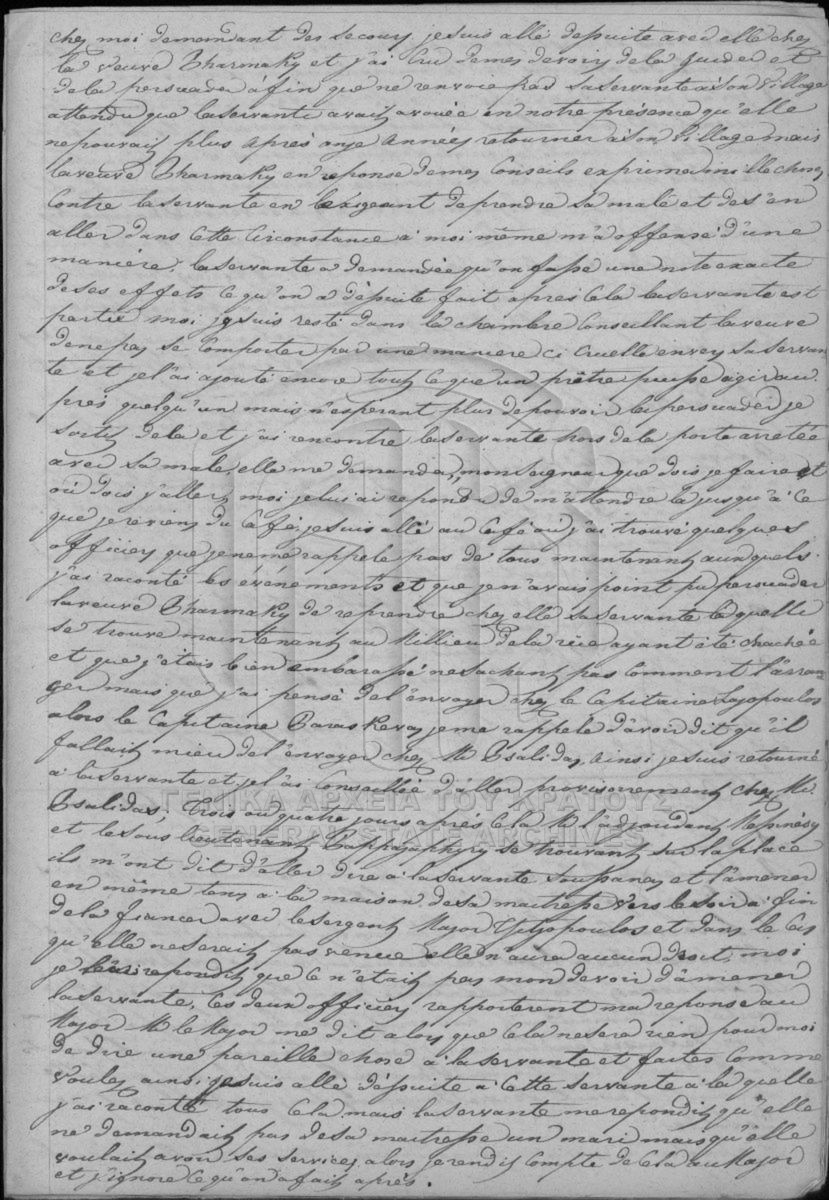 chez moi demandant des secours, je suis allé depuite avec elle chez
la veuve Pharmaky et j'ai cru de mes devoirs de la guider et
de la persuader à fin que ne renvoce pas sa servante à son village
attendu que la servante avait avouée en notre présence qu'elle
ne pouvait plus après onze années retourner à son village mais
la veuve Pharmaky en réponse de mes conseils exprima mille choses
contre la servante en l'exigeant de prendre sa male et de s'en
aller dans cette circonstance à moi même m'a offensé d'une
maniere; la servante a demandée qu'on fasse une note exacte
de ses effets ce qu'on a dépuite fait après cela la servante est
partie moi je suis resté dans la chambre conseillant la veuve
de ne pas se comporter par une maniere ci cruelle envers sa servan
te et je l'ai ajouté encore tout ce que un prêtre puisse agir au
près quelqu'un mais n'esperant plus de pouvoir la persuader je
sortis de la et j'ai rencontré la servante hors de la porte arretée
avec sa male, elle me demanda,, monseigneur que dois je faire et
où dois j'aller, moi je lui ai repondu de m'attendre là jusqu'à ce
que je reviens du café, je suis allé au café où j'ai trouvé quelques
officiers que je ne me rappele pas de tous maintenant aux quels
j'ai raconté les événements et que je n'avais point pu persuader
la veuve Pharmaky de reprendre chez elle sa servante la quelle
se trouve maintenant au millieu de la rue ayant été chachée
et que j'étais bien embarassé ne sachant pas comment l'arran
ger mais que j'ai pensé de l'envoyer chez le Capitaine
alors le Capitaine Paraskevas je me rappele d'avoir dit qu'il
fallait mieu de l'envoyer chez Mr Psalidas, ainsi je suis retourné
à la servante et je l'ai conseillée d'aller provisoirement chez Mr
Psalidas; trois ou quatre jours après cela Mr l'adjoudant
et le sous lieutenant se trouvant sur la place
ils m'ont dit d'aller dire à la servante et l'amener
en même tems à la maison de sa maitresse vers le soir à fin
de la fiancer avec le sergent Major et dans le cas
qu'elle ne serait pas venue elle n'aura aucun droit, moi
je repondis que ce n'était pas mon devoir d'amener
la servante, ces deux officiers rapporterent ma reponse au
Major Mr le Major me dit alors que cela ne sera rien pour moi
de dire une pareille chose à la servante et faites comme
voulez ainsi je suis allé dépuite à cette servante à la quelle
j'ai raconté tous cela mais la servante me repondit qu'elle
ne demandait pas de sa maitresse un mari mais qu'elle
voulait avoir ses services, alors je rendis compte de cela au Major
et j'ignore ce qu'on a fait après.
ΓΕΝΙΚΑ ΑΡΧΕΙΑ ΤΟΥ ΚΡΑΤΟΥΣ
GENERAL STATE ARCHIVES